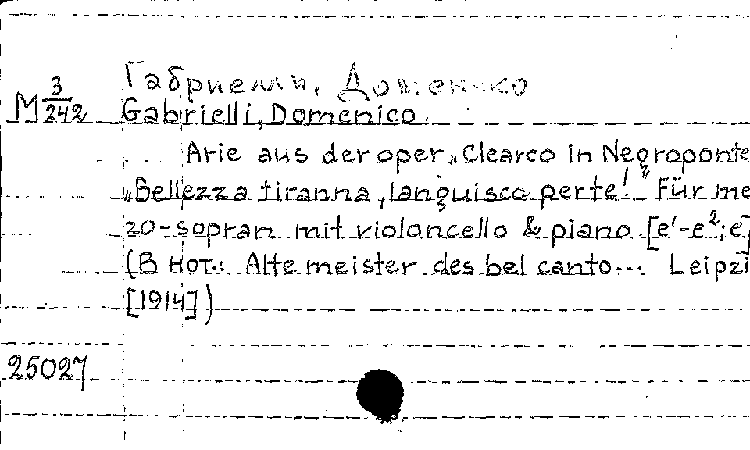 Габриелли, Доменико
М 3/242 Gabrielli, Domenico
Arie aus der oper „Clearco in Negroponte
„Bellezza tiranna, languisco perte!" Für me
zo-sopran mit violoncello & piano [e'-e²; e]
(В нот.: Alte meister des bel canto... Leipzi
[1914])
25027